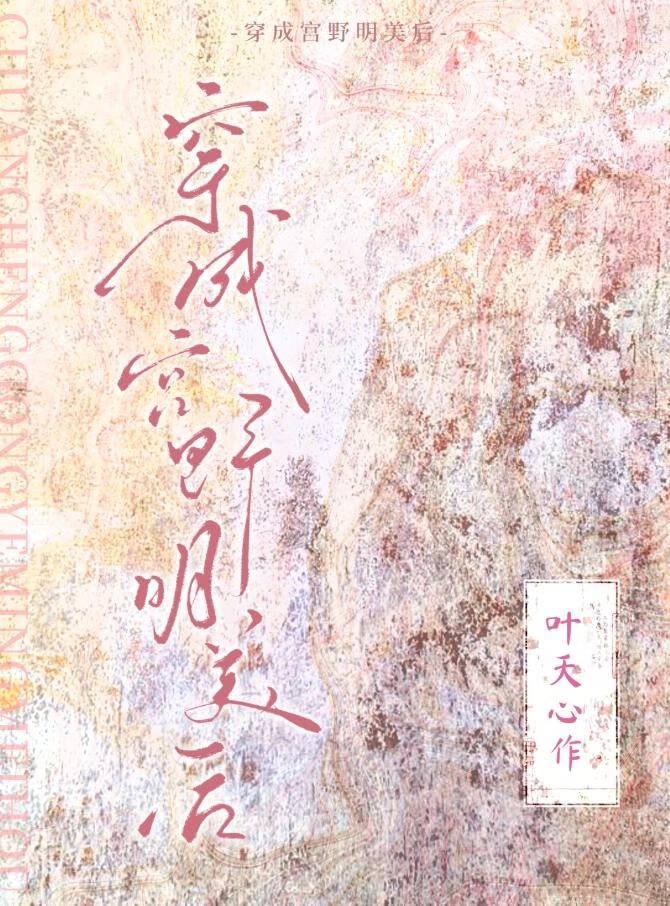 -穿成宫野明美后-
穿成宫野明美后
CHUANGCHENGGONGYEMINGMEIHOU
叶天心作